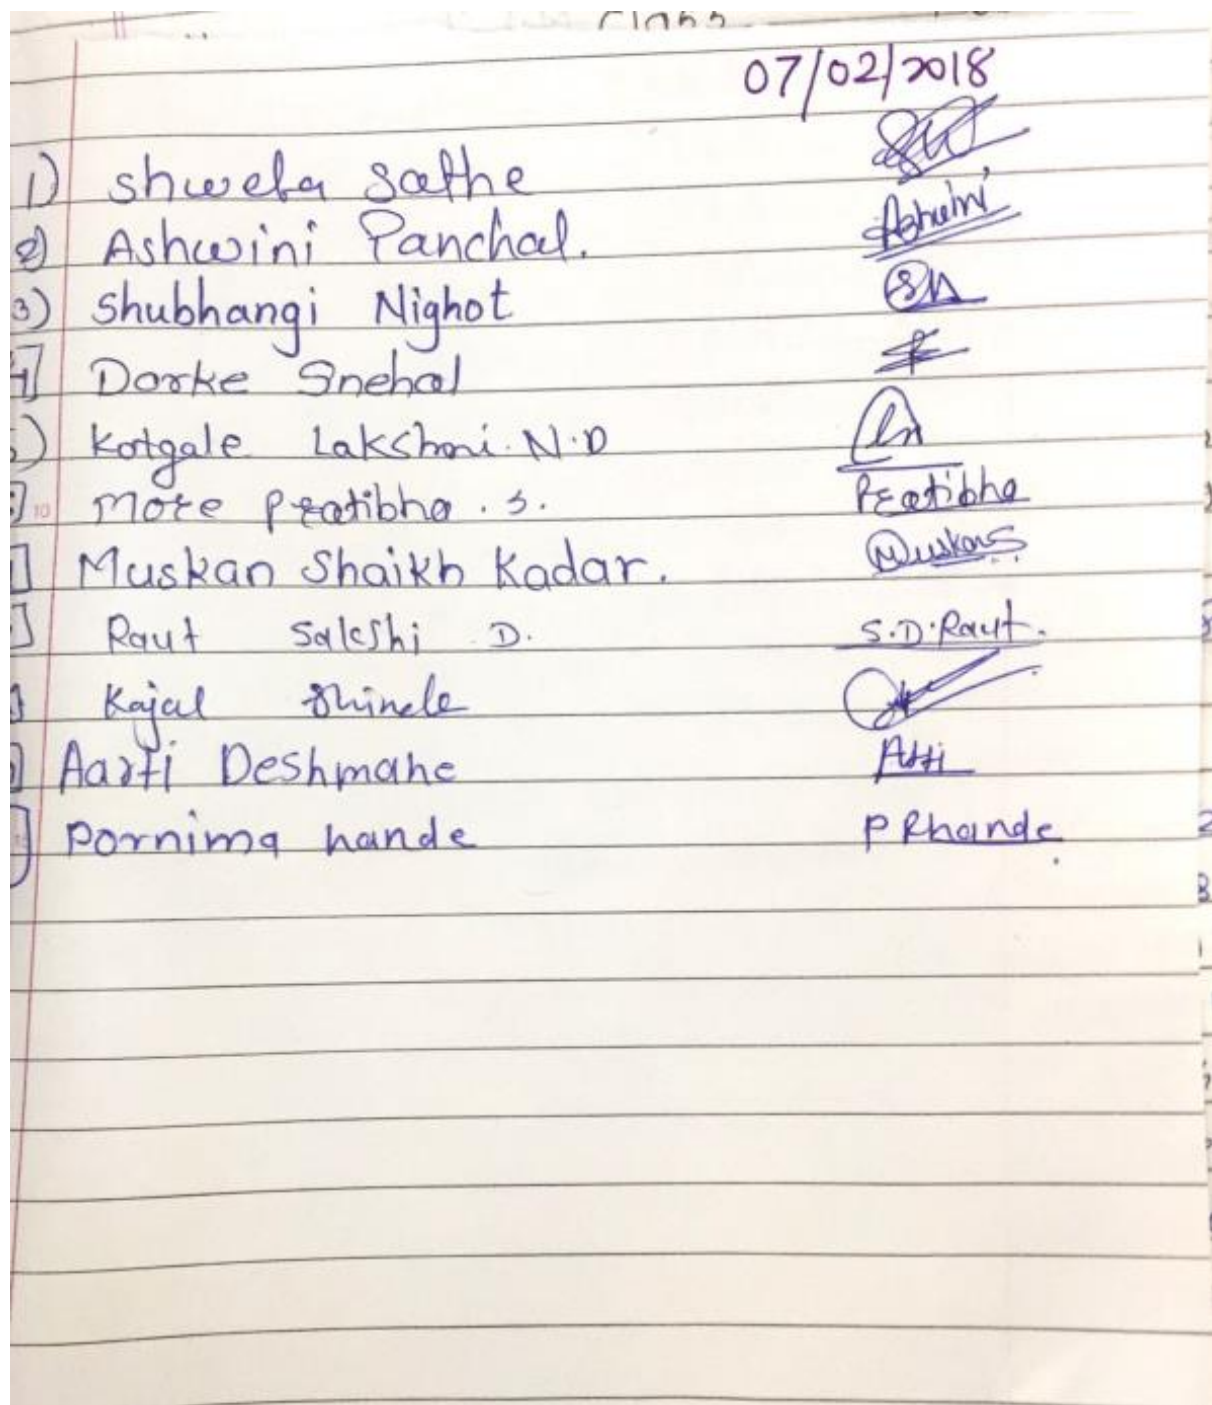 class
07/02/2018
1) Shweta Sathe
2) Ashwini Panchal. Ashwini
3) Shubhangi Nighot SN
4] Dorke Snehal
5) Kotgale Lakshmi. N.D
10 More Pratibha. S. Pratibha
Muskan Shaikh Kadar. Muskan S
Raut Sakshi D. S.D.Raut.
Kajal Shinde
Aarti Deshmane Arti
Pornima hande P Rhande